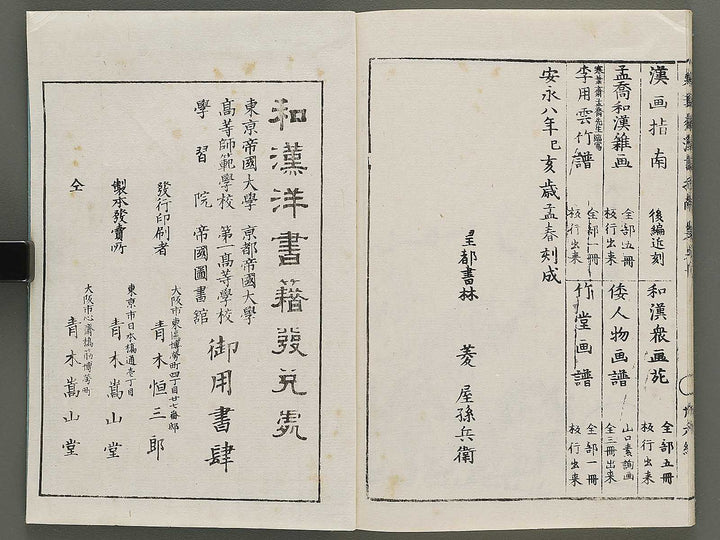 漢画指南 後編近刻
和漢衆画苑 全部五冊 板行出来
孟喬和漢雑画 全部五冊 板行出来
倭人物画譜 山口素絢画 全三冊出来
寒葉斎孟喬先生臨寫
李用雲竹譜 全部一冊 板行出来
竹堂画譜 全部一冊 板行出来
安永八年己亥歳孟春刻成
皇都書林 菱屋孫兵衛
和漢洋書籍發兌處
東京帝國大學 京都帝國大學
高等師範學校 第一高等學校
學習院 帝國圖書舘
御用書肆
大阪市東區博勞町四丁目廿七番邸
發行印刷者 青木恒三郎
東京市日本橋通壱丁目
製本發賣所 青木嵩山堂
大阪市心齋橋筋博勞町
仝 青木嵩山堂